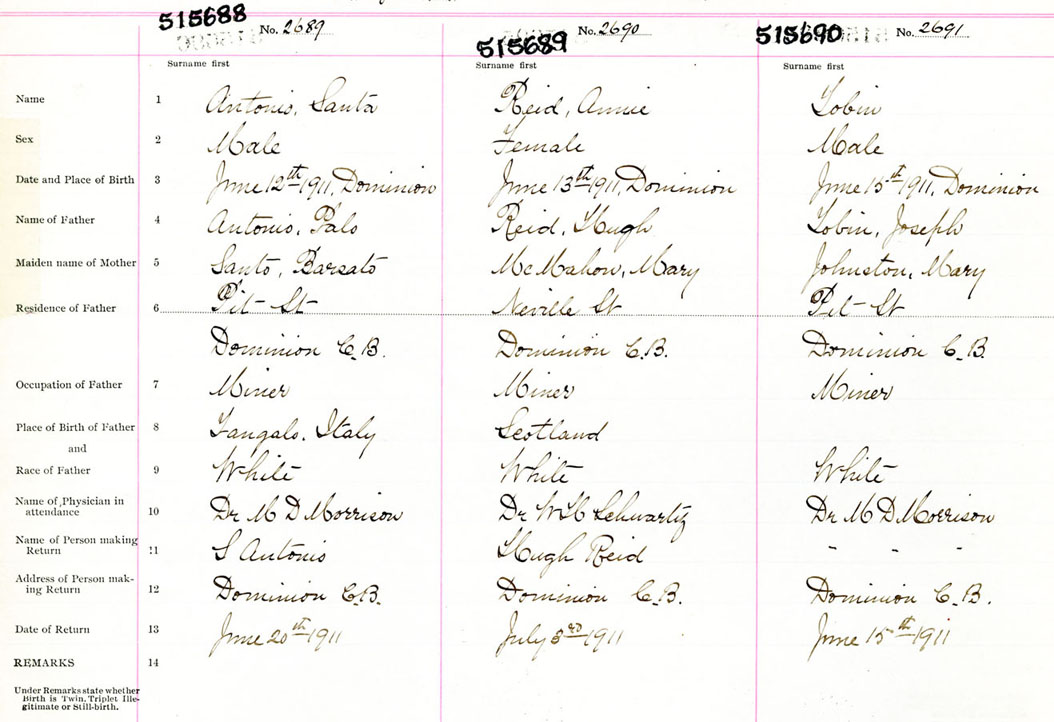 515688 No. 2689 515689 No. 2690 515690 No. 2691
Surname first Surname first Surname first
Name 1 Antonio, Santa Reid, Annie Tobin
Sex 2 Male Female Male
Date and Place of Birth 3 June 12th 1911, Dominion June 13th 1911, Dominion June 15th 1911, Dominion
Name of Father 4 Antonio, Palo Reid, Hugh Tobin, Joseph
Maiden name of Mother 5 Santo, Barsato McMahon, Mary Johnston, Mary
Residence of Father 6 Pit St Neville St Pit St
Dominion C.B. Dominion C.B. Dominion C.B.
Occupation of Father 7 Miner Miner Miner
Place of Birth of Father 8 Italy Scotland
and
Race of Father 9 White White White
Name of Physician in
attendance 10 Dr M D Morrison Dr Schwartz Dr M D Morrison
Name of Person making
Return 11 S Antonio Hugh Reid " " "
Address of Person mak-
ing Return 12 Dominion C.B. Dominion C.B. Dominion C.B.
Date of Return 13 June 20th 1911 July 3rd 1911 June 15th 1911
REMARKS 14
Under Remarks state whether
Birth is Twin, Triplet Ille-
gitimate or Still-birth.